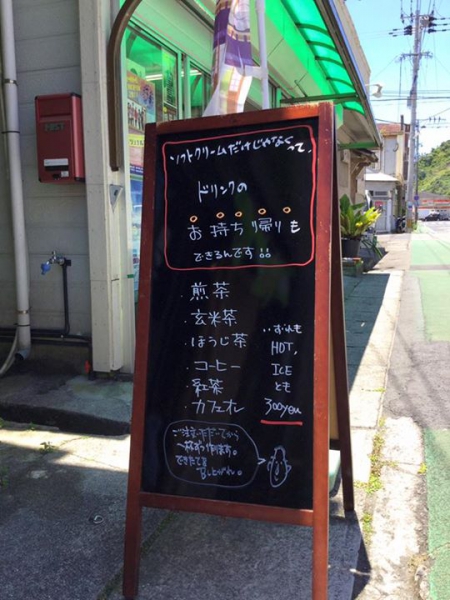 ソフトクリームだけじゃなくって、
ドリンクの
お持ち帰りも
できるんです!!
・煎茶
・玄米茶
・ほうじ茶
・コーヒー
・紅茶
・カフェオレ
いずれも
HOT,
ICE
とも
300yen
ご注文いただいてから
一杯ずつ作ります。
できたてを
召し上がれ。